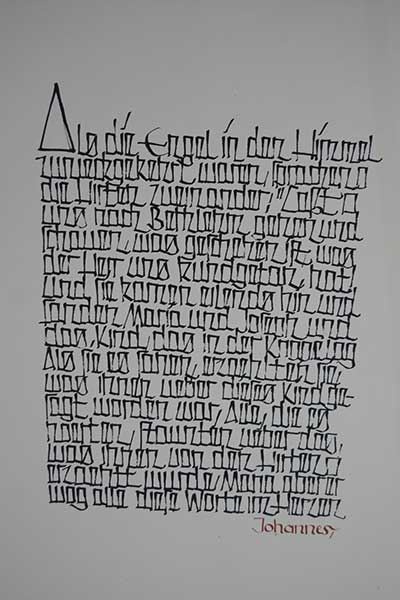 Als die Engel in den Himmel
zurückgekehrt waren, sprachen
die Hirten zueinander, Laßt
uns nach Bethlehem gehen und
schauen, was geschehen ist, was
der Herr uns kundgetan hat,
und sie kamen eilends hin, und
fanden Maria und Joseph und
das Kind, das in der Krippe lag
Als sie es sahen, erzaehlten sie,
was ihnen ueber dieses Kind ge-
sagt worden war, Alle, die es
hoerten, staunten ueber das,
was ihnen von den Hirten
erzaehlt wurde, Maria aber
wog alle diese Worte im Herzen
Johannes